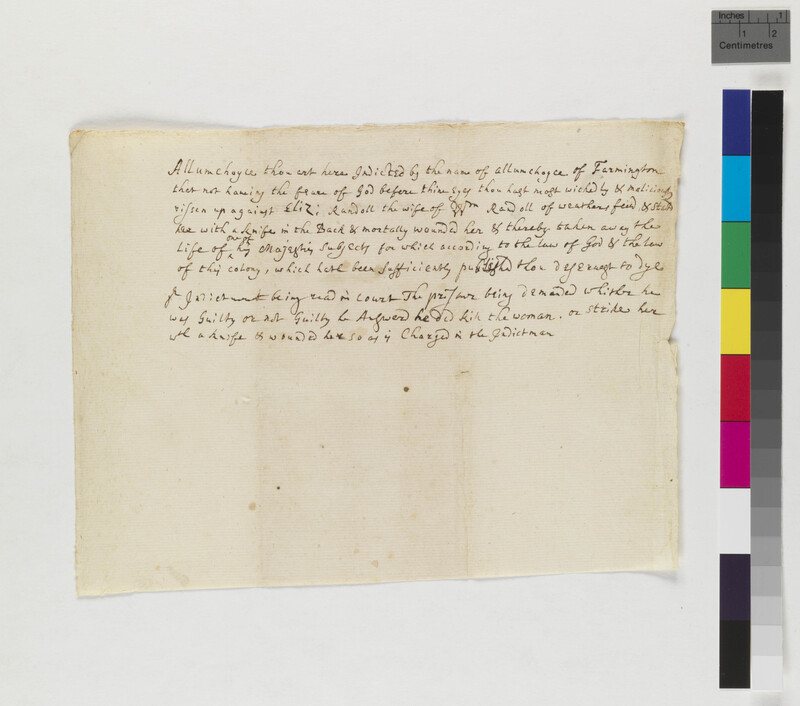 Inches 1
1 2
Centimetres
Allumchoyce thou art here Indicted by the name of allumchoyce of Farmington
that not haveing the feare of God before thine Eyes thou hast most wickedly & maliciously
rissen up against Eliz: Randoll the wife of Randoll of weathersfeild & Stab
her with a knife in the Back & mortally wounded her & thereby taken away the
Life of one of his Majesties Subjects for which according to the law of God & the law
of this colony, which hath been Sufficiently published thou deservest to dye
ye Indictment being read in court The prisoner being demanded whither he
was Guilty or not Guilty he Answerd he did kill the woman. or Strike her
wth a knife & wounded her so as is Charged in the Indictment